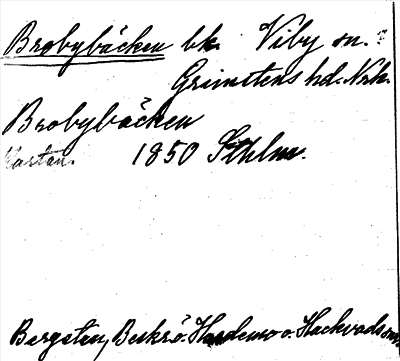 Brobybäcken bk. Viby sn.
Grimstens hd. Nrk.
Brobybäcken
Kartan. 1850 Sthlm.
Bergsten, Beskr. ö. Hardemo o. Hackvads snr